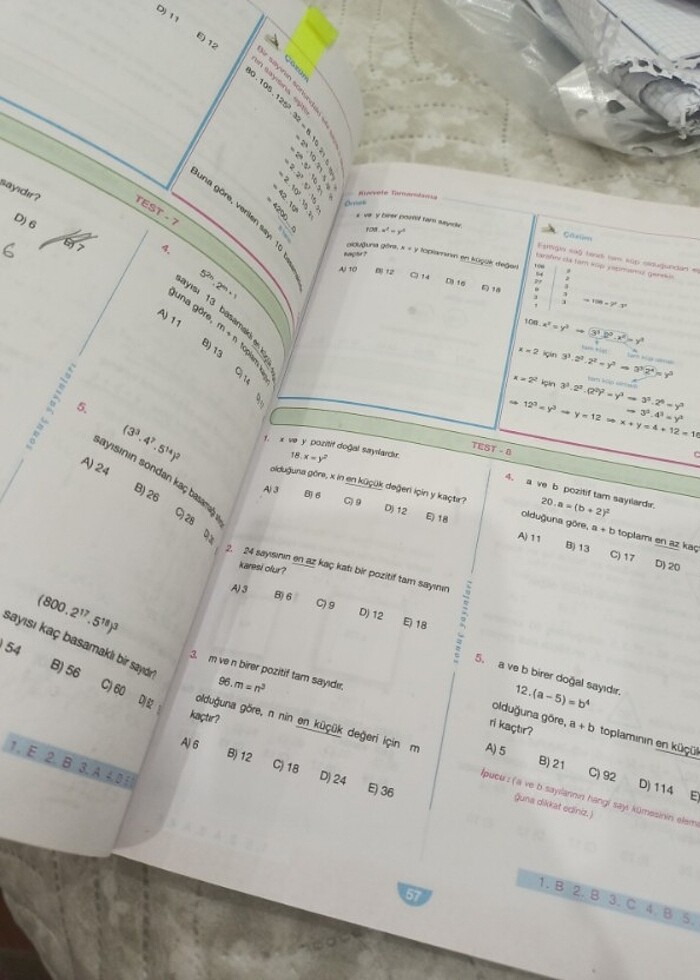 D) 11
E) 12
Çözüm
Bir sayının sonundaki
nın sayısına eşittir.
80 . 105 . 125² . 32 = 8 . 10 . 21 . 5
= 2 . 10⁷ . 10 . 21
= 42 . 10⁸
= 4200...0
Buna göre, verilen sayı 10 basamaklıdır.
TEST - 7
sayıdır?
D) 6
E) 7
6
4.
5²ⁿ . 2ᵐ⁺¹
sayısı 13 basamaklı en küçük
ğuna göre, m + n toplamı kaçtır?
A) 11
B) 13
C) 14
sonuç yayınları
5.
(3³ . 4⁷ . 5¹⁴)³
sayısının sondan kaç basamağı
A) 24
B) 26
C) 28
(800 . 2¹⁷ . 5¹⁸)³
sayısı kaç basamaklı bir sayıdır?
54
B) 56
C) 60
D) 62
1. E 2. B 3. A 4. D
Kuvvete Tamamlama
Örnek
x ve y birer pozitif tam sayıdır.
108 . x² = y³
olduğuna göre, x + y toplamının en küçük değeri
kaçtır?
A) 10 B) 12 C) 14 D) 16 E) 18
Çözüm
Eşitliğin sağ tarafı tam küp olduğundan
tarafını da tam küp yapmamız gerekir.
108 2
54 2
27 3
9 3
3 3
1
⇒ 108 = 2² . 3³
108 . x² = y³ ⇒ 3³ . 2² . x² = y³
tam küp
tam küp olmalı
x = 2 için 3³ . 2² . 2² = y³ ⇒ 3³ . 2⁴ = y³
tam küp olmadı
x = 2² için 3³ . 2² . (2²)² = y³ ⇒ 3³ . 2⁶ = y³
⇒ 3³ . 4³ = y³
⇒ 12³ = y³ ⇒ y = 12 ⇒ x + y = 4 + 12 = 16
TEST - 8
1. x ve y pozitif doğal sayılardır.
18 . x = y²
olduğuna göre, x in en küçük değeri için y kaçtır?
A) 3 B) 6 C) 9 D) 12 E) 18
2. 24 sayısının en az kaç katı bir pozitif tam sayının
karesi olur?
A) 3 B) 6 C) 9 D) 12 E) 18
3. m ve n birer pozitif tam sayıdır.
96 . m = n³
olduğuna göre, n nin en küçük değeri için m
kaçtır?
A) 6 B) 12 C) 18 D) 24 E) 36
sonuç yayınları
4. a ve b pozitif tam sayılardır.
20 . a = (b + 2)²
olduğuna göre, a + b toplamı en az kaç
A) 11 B) 13 C) 17 D) 20
5. a ve b birer doğal sayıdır.
12 . (a – 5) = b⁴
olduğuna göre, a + b toplamının en küçük
ri kaçtır?
A) 5 B) 21 C) 92 D) 114 E)
İpucu : (a ve b sayılarının hangi sayı kümesinin elema
ğuna dikkat ediniz.)
57
1. B 2. B 3. C 4. B 5.